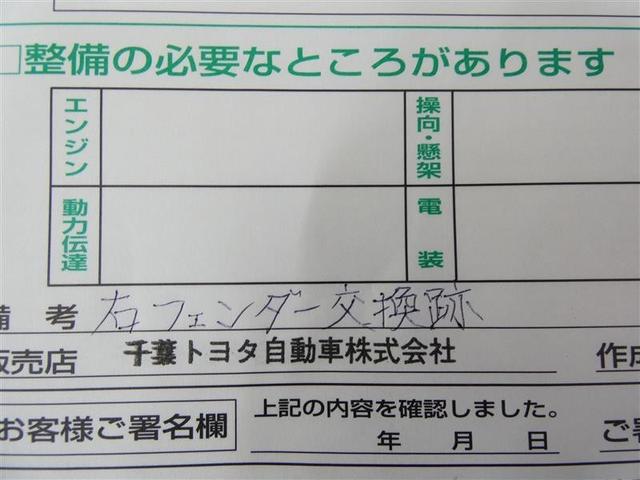 □整備の必要なところがあります
エンジン
操向・懸架
動力伝達
電装
備考 右フェンダー交換跡
販売店 千葉トヨタ自動車株式会社 作成
お客様ご署名欄 上記の内容を確認しました。 ご署
年 月 日